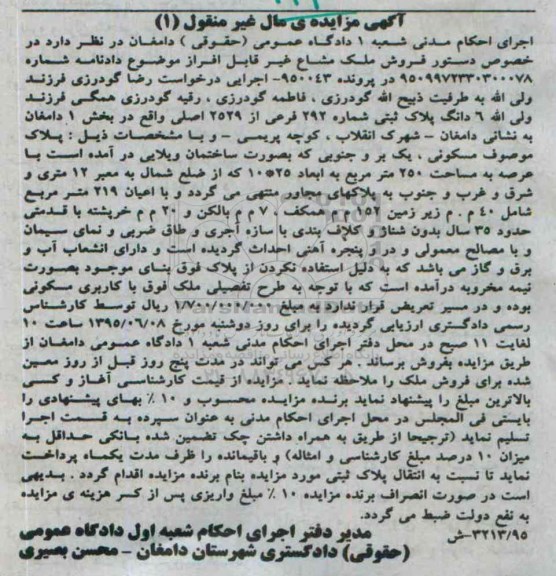 آگهی مزایده ی مال غیر منقول (۱)
اجرای احکام مدنی شعبه ۱ دادگاه عمومی (حقوقی ) دامغان در نظر دارد در
خصوص دستور فروش ملک مشاع غیر قابل افراز موضوع دادنامه شماره
۹۵۰۹۹۷۲۳۳۰۳۰۰۰۷۸ در پرونده ۹۵۰۰۴۳- اجرایی درخواست رضا گودرزی فرزند
ولی الله به طرفیت ذبیح الله گودرزی ، فاطمه گودرزی ، رقیه گودرزی همگی فرزند
ولی الله ۶ دانگ پلاک ثبتی شماره ۲۹۲ فرعی از ۲۵۲۹ اصلی واقع در بخش ۱ دامغان
به نشانی دامغان - شهرک انقلاب ، کوچه پریمی - و با مشخصات ذیل : پلاک
موصوف مسکونی ، یک بر و جنوبی که بصورت ساختمان ویلایی در آمده است با
عرصه به مساحت ۲۵۰ متر مربع به ابعاد ۲۵*۱۰ که از ضلع شمال به معبر ۱۲ متری و
شرق و غرب و جنوب به پلاکهای مجاور منتهی می گردد و با اعیان ۲۱۹ متر مربع
شامل ۴۰ م . م زیر زمین ۱۵۲ م م همکف ، ۷ م م بالکن و ۲۰ م م خرپشته با قدمتی
حدود ۳۵ سال بدون شناژ و کلاف بندی با سازه آجری و طاق ضربی و نمای سیمان
و با مصالح معمولی و درو پنجره آهنی احداث گردیده است و دارای انشعاب آب و
برق و گاز می باشد که به دلیل استفاده نکردن از پلاک فوق بنای موجود بصورت
نیمه مخروبه درآمده است که با توجه به طرح تفصیلی ملک فوق با کاربری مسکونی
بوده و در مسیر تعریض قرار ندارد به مبلغ ۱/۷۰۰/۰۰۰/۰۰۰ ریال توسط کارشناس
رسمی دادگستری ارزیابی گردیده را برای روز دوشنبه مورخ ۱۳۹۵/۰۶/۰۸ ساعت ۱۰
لغایت ۱۱ صبح در محل دفتر اجرای احکام مدنی شعبه ۱ دادگاه عمومی دامغان از
طریق مزایده بفروش برساند . هر کس می تواند در مدت پنج روز قبل از روز معین
شده برای فروش ملک را ملاحظه نماید . مزایده از قیمت کارشناسی آغاز و کسی
بالاترین مبلغ را پیشنهاد نماید برنده مزایده محسوب و ۱۰ % بهای پیشنهادی را
بایستی فی المجلس در محل اجرای احکام مدنی به عنوان سپرده به قسمت اجرا
تسلیم نماید (ترجیحا از طریق به همراه داشتن چک تضمین شده بانکی حداقل به
میزان ۱۰ درصد مبلغ کارشناسی و امثاله) و باقیمانده را ظرف مدت یکماه پرداخت
نماید تا نسبت به انتقال پلاک ثبتی مورد مزایده بنام برنده مزایده اقدام گردد . بدیهی
است در صورت انصراف برنده مزایده ۱۰ % مبلغ واریزی پس از کسر هزینه ی مزایده
به نفع دولت ضبط می گردد.
۳۲۱۳/۹۵-ش
مدیر دفتر اجرای احکام شعبه اول دادگاه عمومی
(حقوقی) دادگستری شهرستان دامغان - محسن بصیری